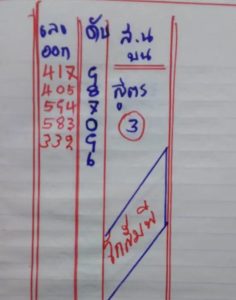 เลข ดับ ส.น
ออก บน
417 9
405 8 สูตร
594 7
583 0 3
339 9
6
โกสัมพี